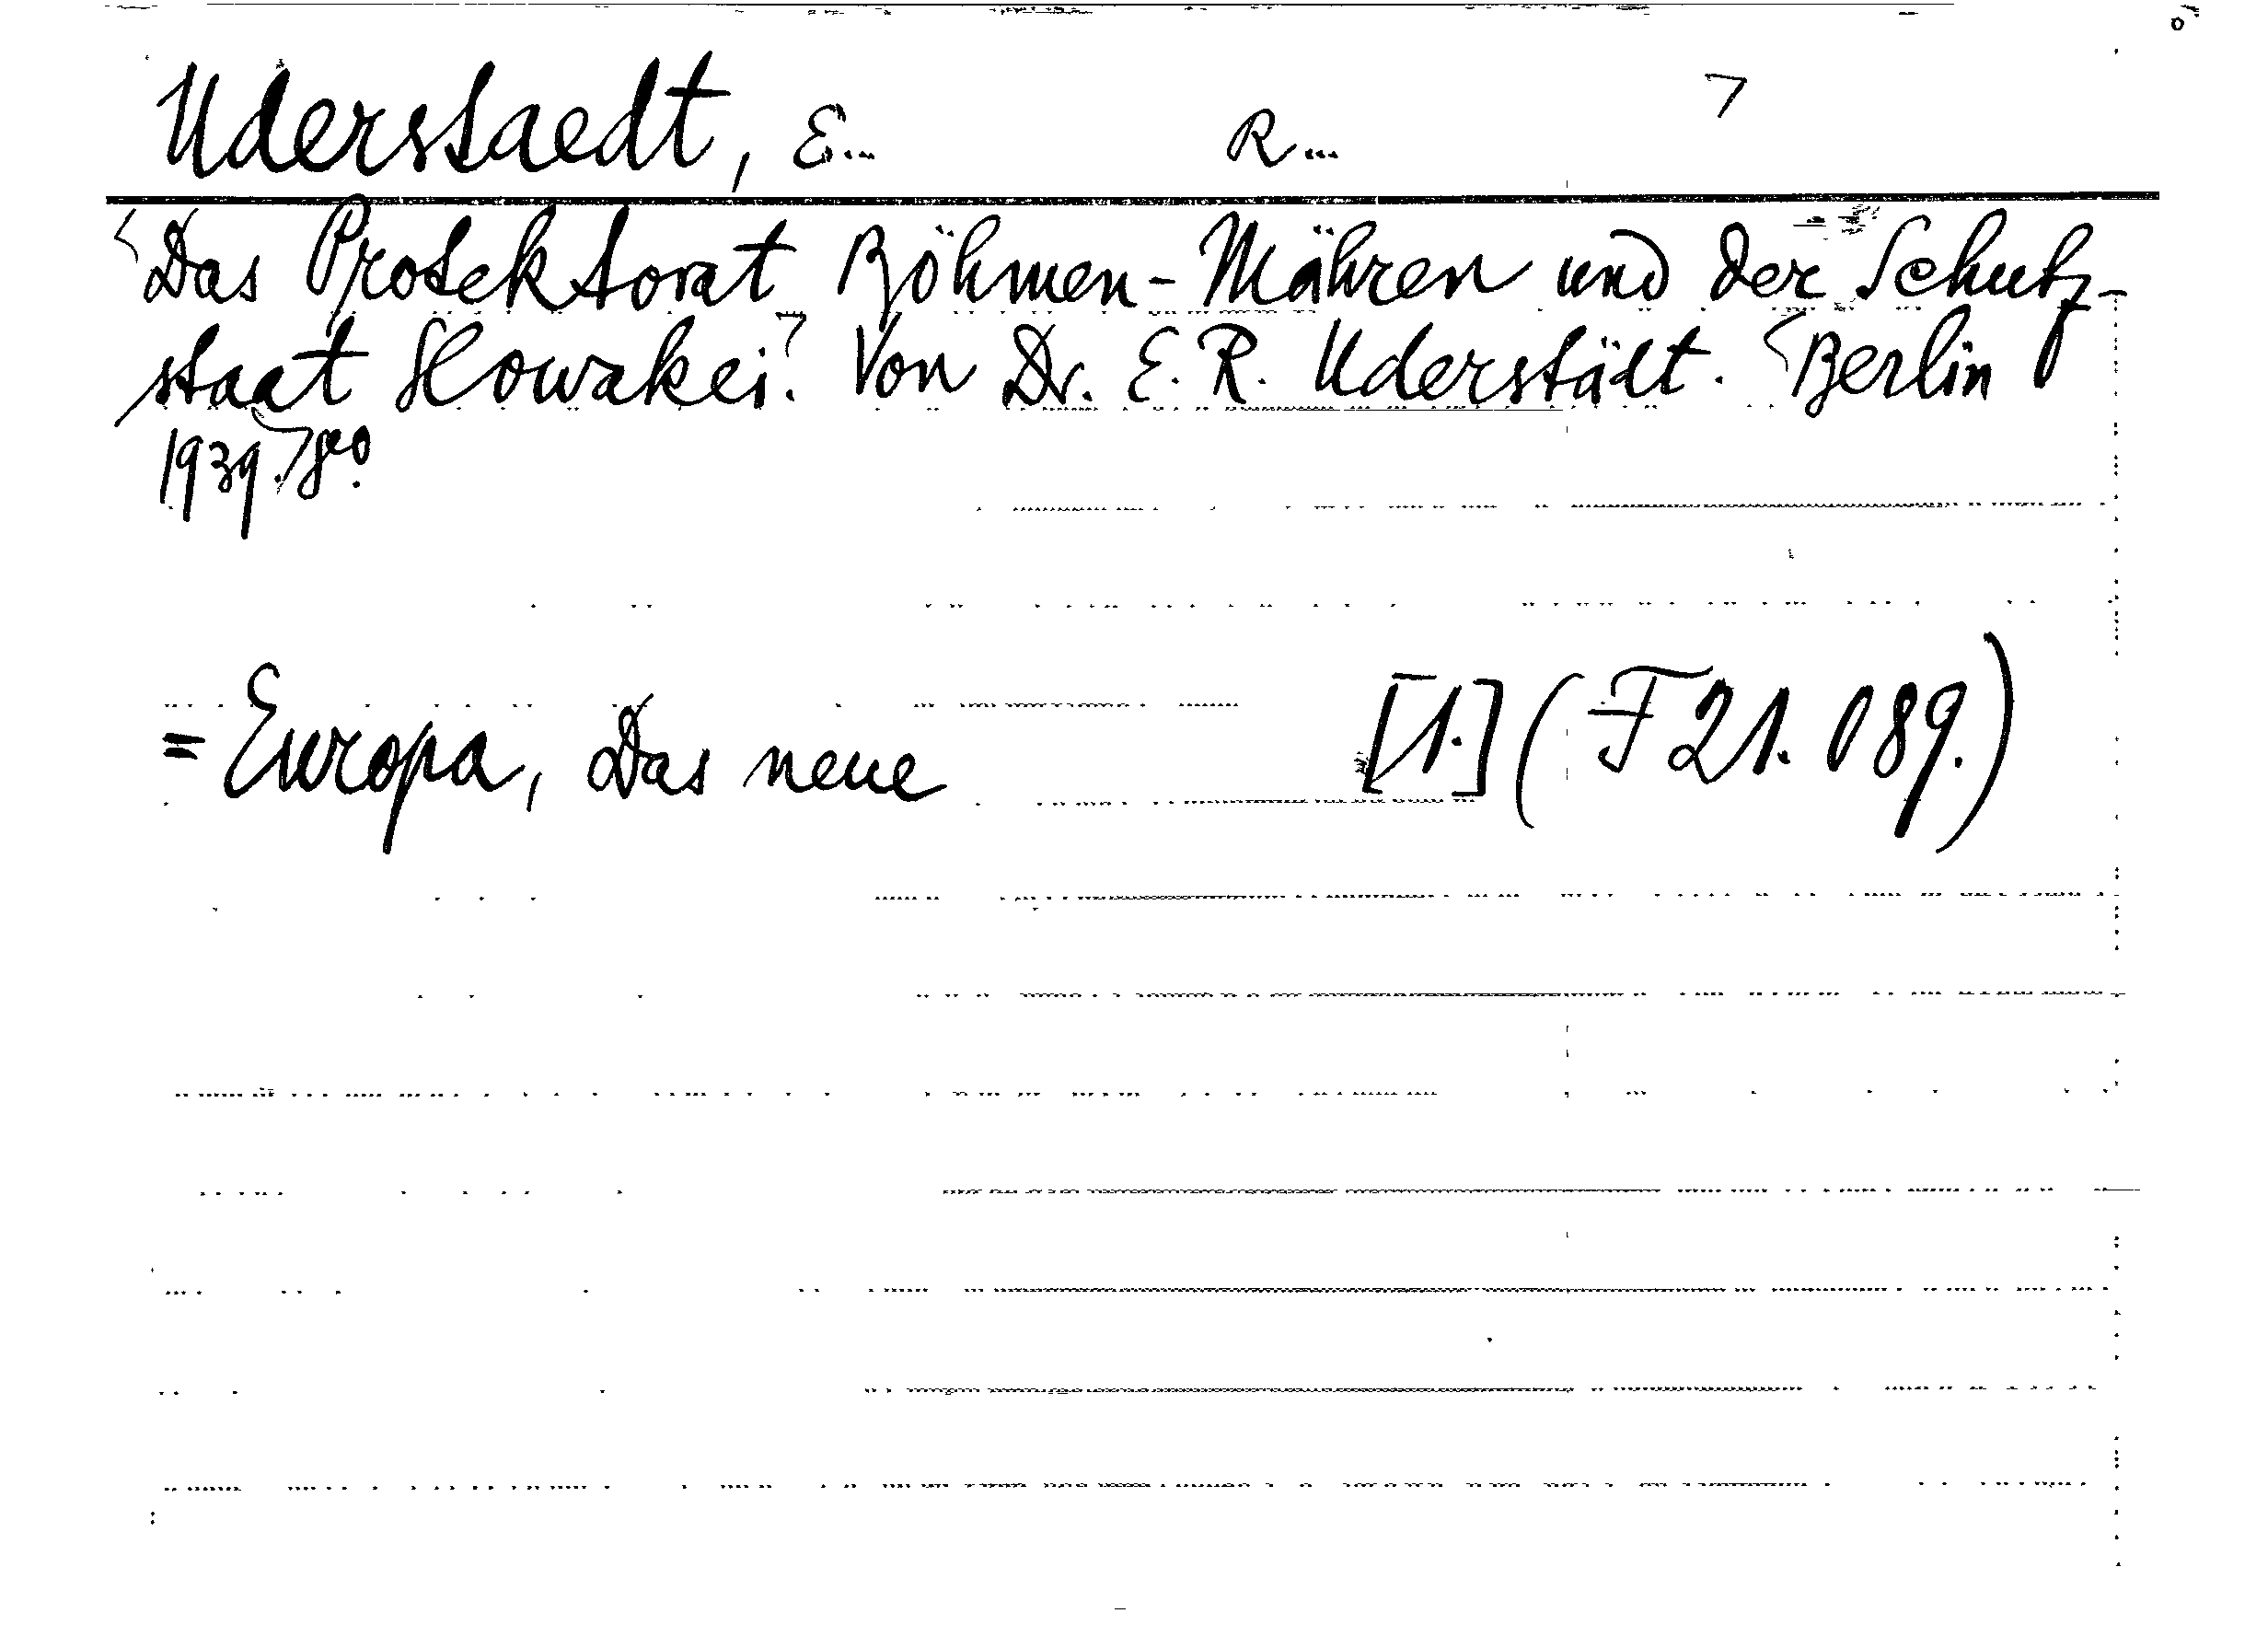 Uderstaedt, E... R...
Das Protektorat Böhmen-Mähren und der Schutz-
staat Slowakei. Von Dr. E. R. Uderstädt. Berlin
1939. 8°.
= Europa, Das neue [1.] (F 21.089.)